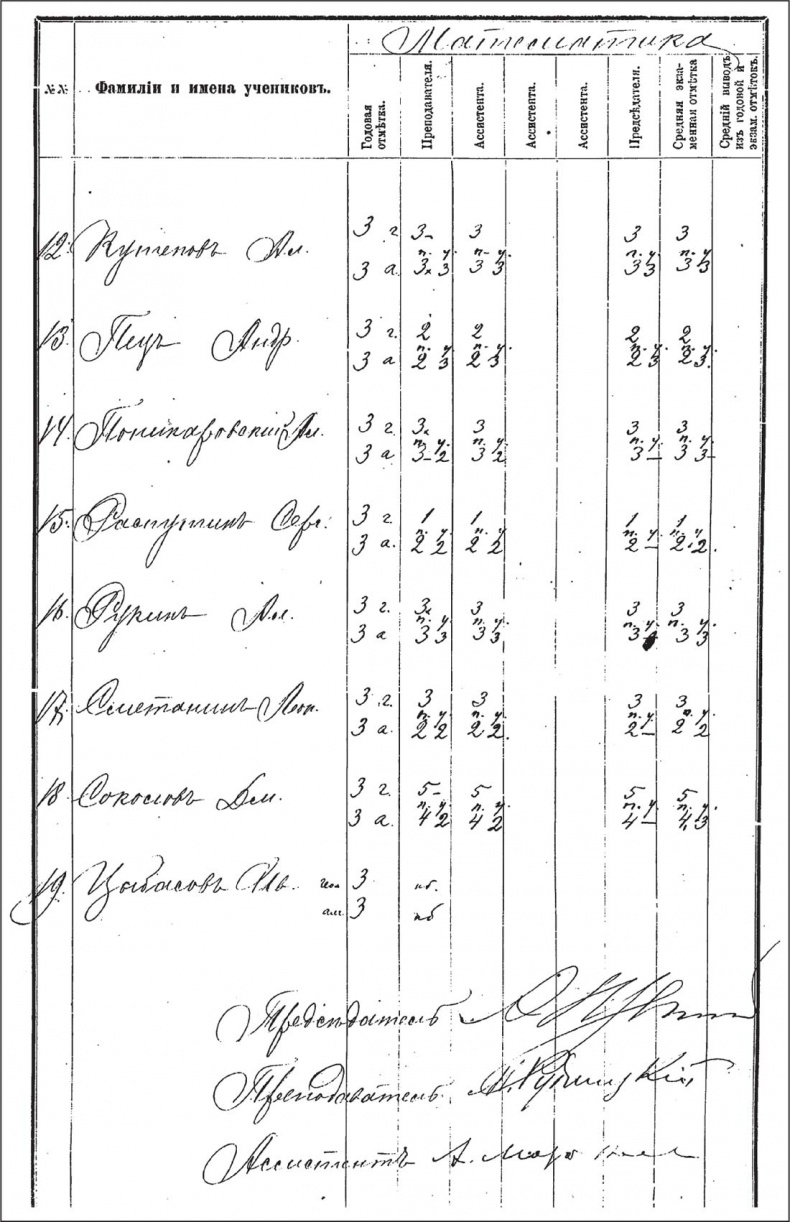 Математика
№№
Фамиліи и имена учениковъ.
Годовая отмѣтка.
Преподавателя.
Ассистента.
Ассистента.
Ассистента.
Предсѣдателя.
Средняя экзаменная отмѣтка
Средній выводъ изъ годовой и экзам. отмѣтокъ.
3 г. 3- 3 3 3
12. Кутеповъ Ал. п. у п- у п. у п. у
3 а. 3 3 3 3 3 3 3 3
3 г. 2 2 2 2
13. Пецъ Андр. п. у п. у п. у п. у
3 а 2 3 2 3 2 3 2 3.
3 г. 3 3 3 3
14. Поникаровскій Ал. п. у п. у п. у п. у
3 а 3 2 3 2 3 – 3 3
3 г. 1 1 1 1
15. Распутинъ Серг. п. у п. у п. у п. у
3 а. 2 2 2 2 2 – 2 2
3 г. 3 3 3 3
16 Рукинъ Ал. п. у п. у п. у п. у
3 а 3 3 3 3 3 3 3
3 г. 3 3 3 3
17. Сметанинъ Леон. п. у п. у п. у п. у
3 а. 2 2 2 2 2 – 2 2
3 г. 5- 5 5 5
18 Соколовъ Дм. п. у п. у п. у п. у
3 а. 4 2 4 2 4 – 4 3
19. Цыбасовъ геом 3 нб.
алг 3 нб
Предсѣдатель
Преподаватель Рудницкій
Ассистентъ А.